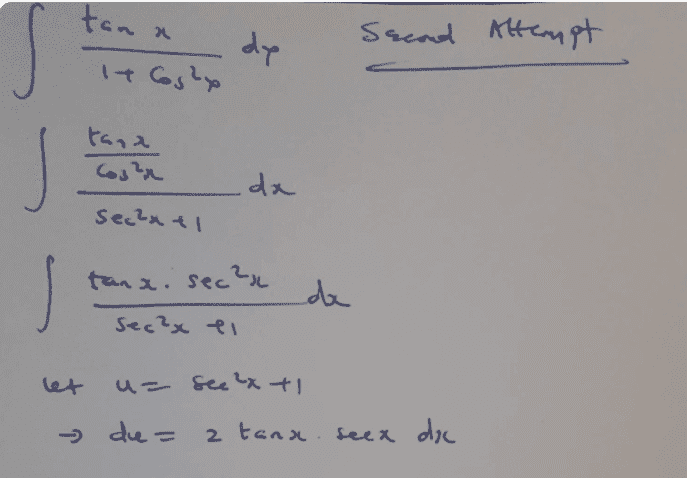 ∫ tan x / 1 + Cos²x dx Second Attempt
∫ tan x / Cos²x / sec²x + 1 dx
∫ tan x . sec²x / sec²x + 1 dx
let u = sec²x + 1
→ du = 2 tan x . secx dx